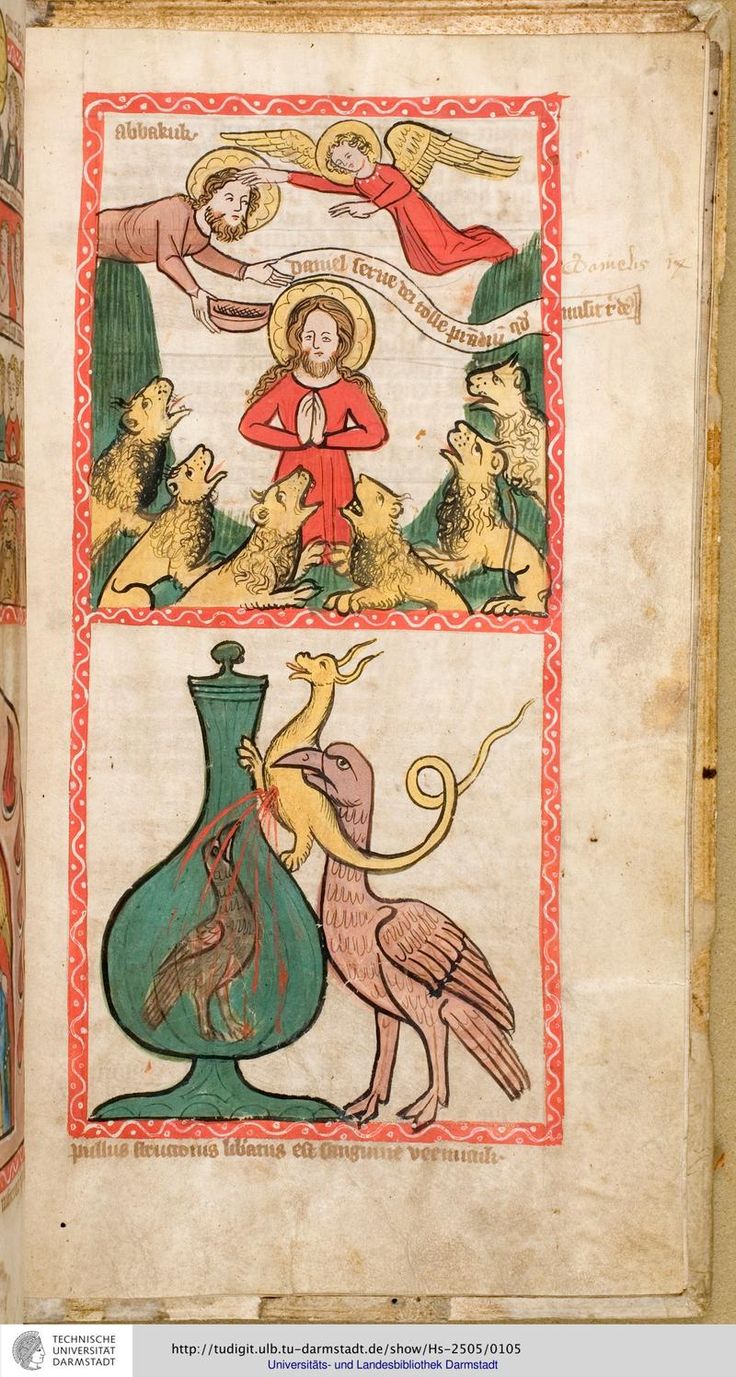 abbakuk
daniel serue dei tolle prādiū qd misit t' de'
Danielis ix
pullus structionis libatus est sanguine vermiculi
TECHNISCHE
UNIVERSITÄT
DARMSTADT
http://tudigit.ulb.tu-darmstadt.de/show/Hs-2505/0105
Universitäts- und Landesbibliothek Darmstadt